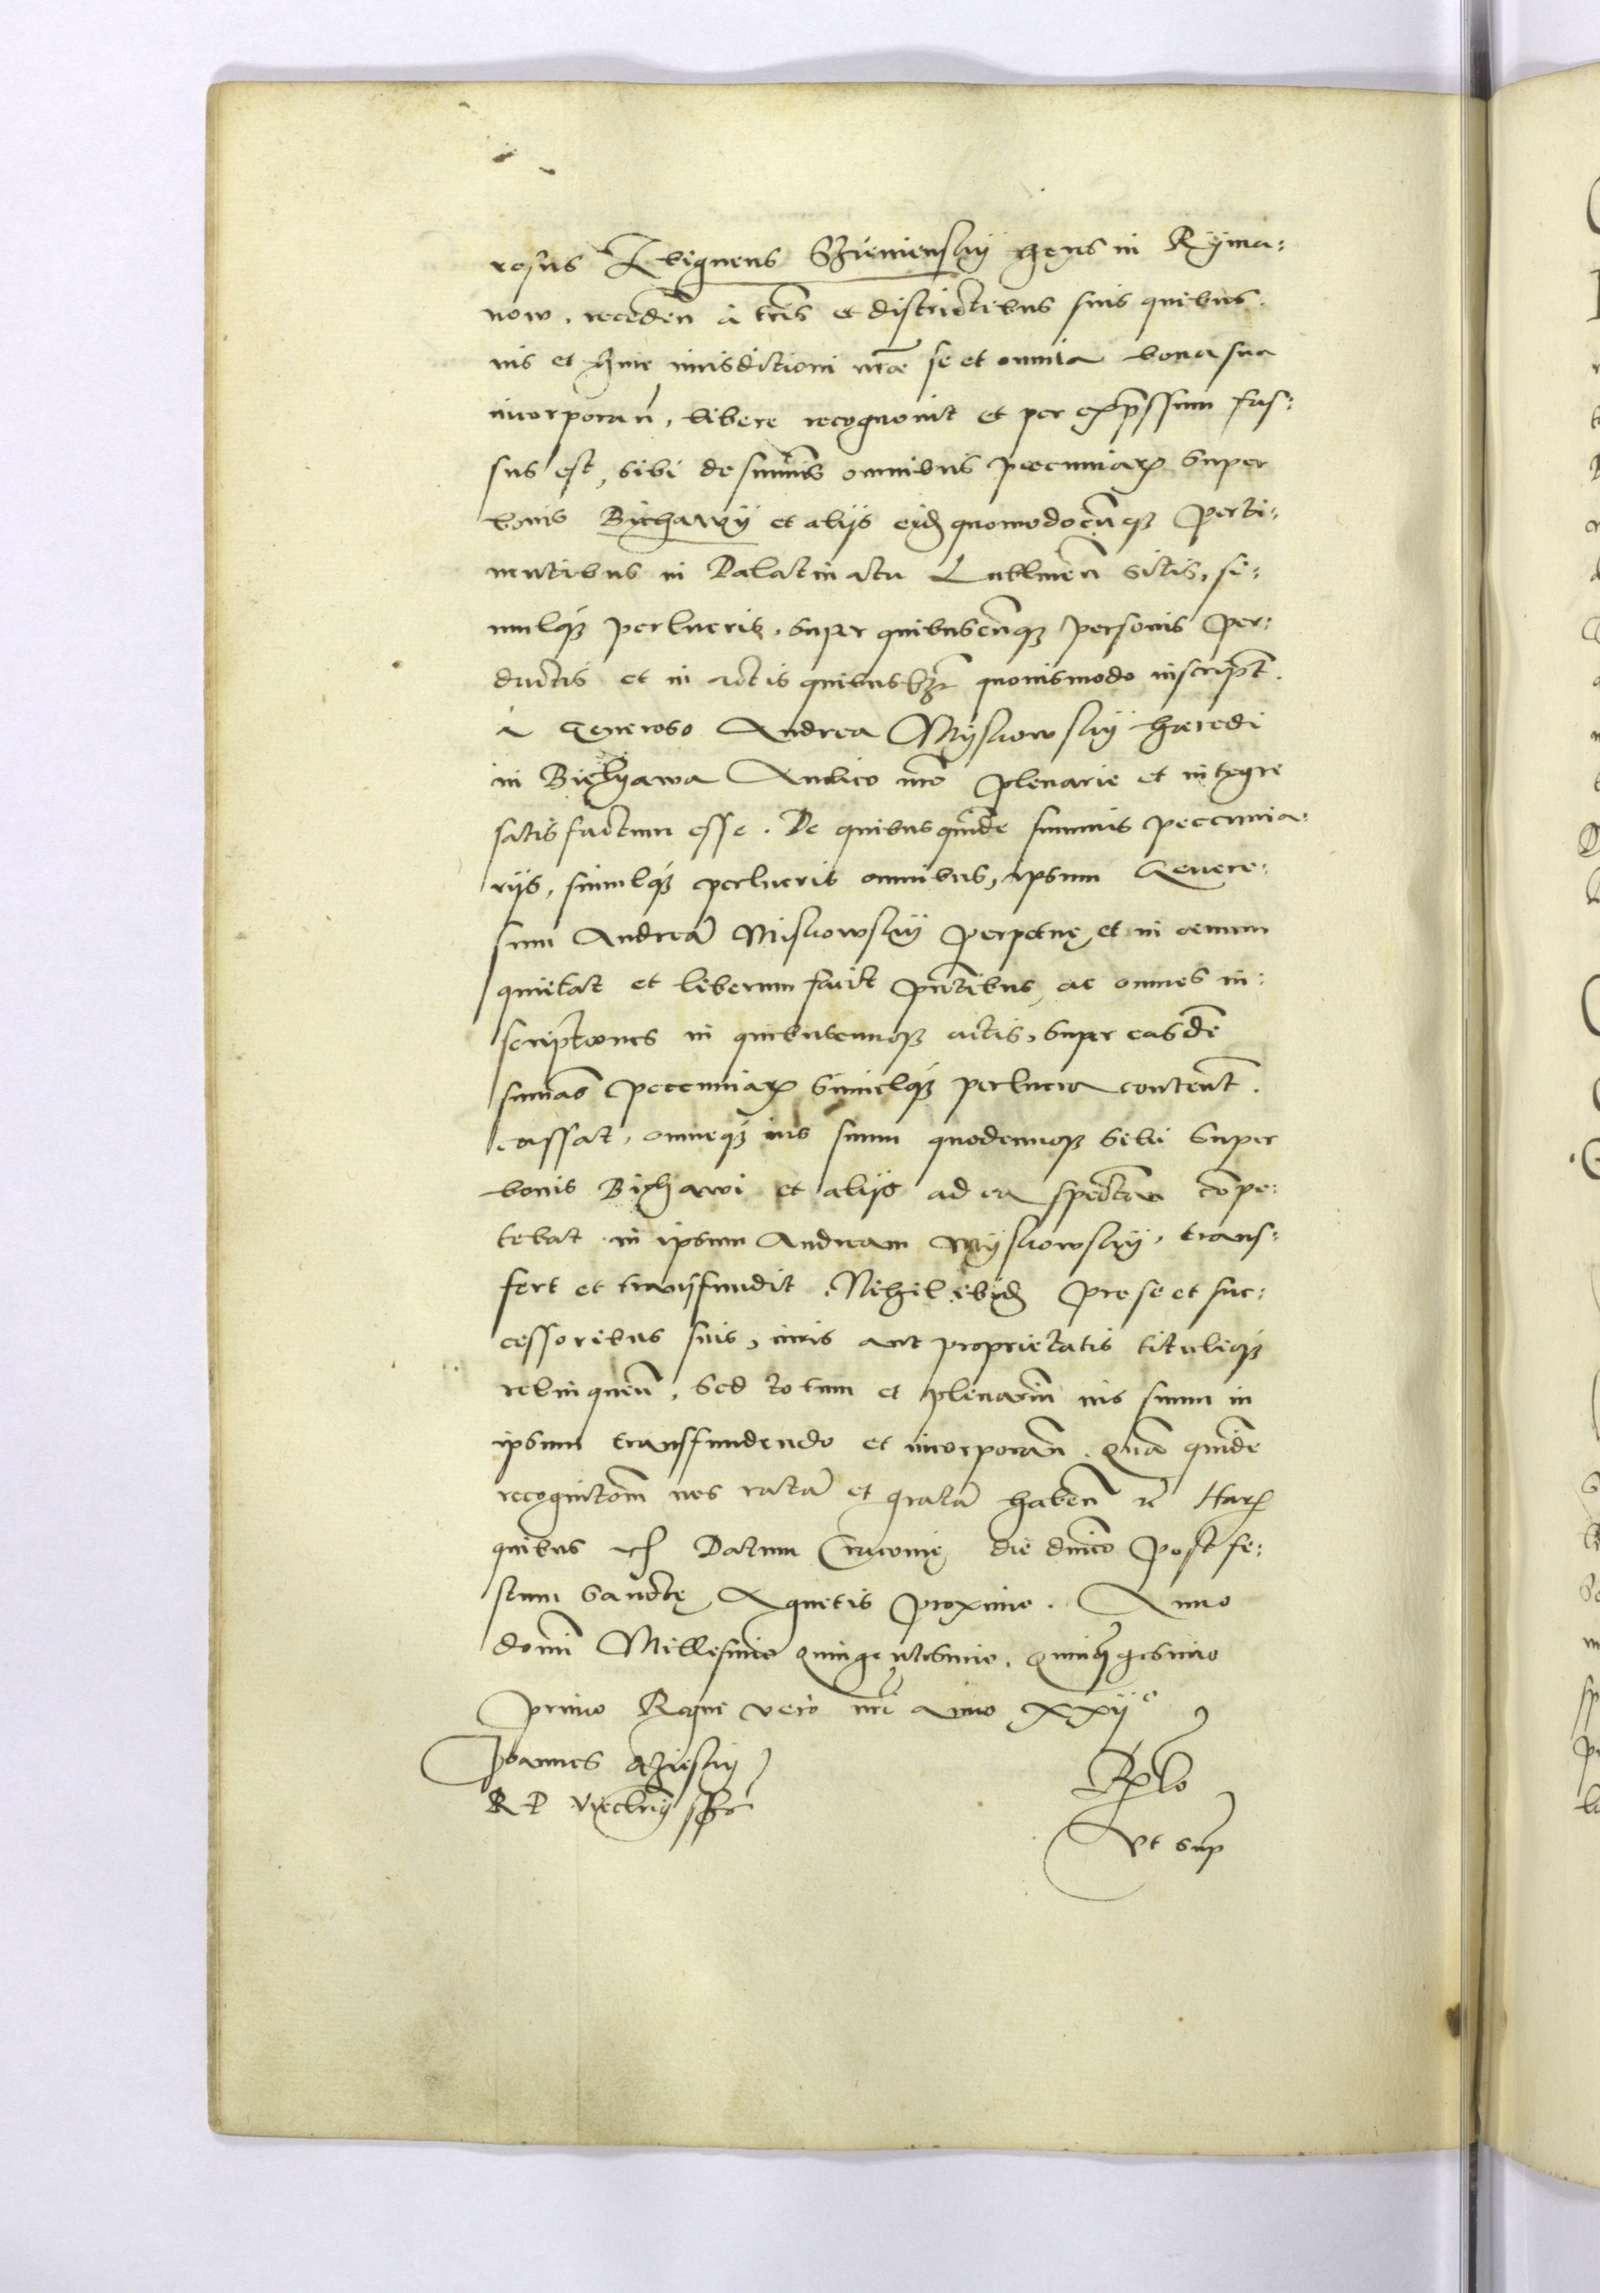 rosus Zbigneus Szienienskÿ heres in Rÿma-
now, receden̄ a trīs et districtibus suis quibus-
uis et huic iurisdictioni nr̄ae se et omnia bona sua
incorporan̄, libere recognouit et per exp̄ssum fas-
sus est, sibi de summis omnibus pecuniarꝫ super
bonis Bichawÿ et alijs eisd quomodocūqꝫ perti-
nentibus in Palatinatu Lublinen̄ sitis, si-
mulqꝫ perlucris, super quibuscūqꝫ personis per-
ductis et in actis quibusl3 quouismodo inscript̄.
a Generoso Andrea Mÿskowskÿ hæredi
in Bichawa Aulico nr̄o plenarie et integre
satisfactum esse. De quibus quidē summis peccunia-
rijs, simulqꝫ perlucris omnibus, ipsum Genero-
sum Andreā Miskowskÿ perpetuę et in æuum
quietat et liberum facit pn̄tibus, ac omnes in-
scriptiones in quibuscunqꝫ actis, super easdē
summas pecuniarꝫ simulqꝫ perlucra content̄.
cassat, omneqꝫ ius suum quodcunqꝫ sibi super
bonis Bichawi et alijs ad ea spectan̄ cōpe-
tebat in ipsum Andream Mÿskowskÿ, trans-
fert et transfundit. Nihil ibid pro se et suc-
cessoribus suis, iuris aut proprietatis tituliqꝫ
relinquen̄, sed totum et plenariū ius suum in
ipsum transfundendo et incorporan̄. Quā quidē
recognitōm nos ratā et gratā haben̄ rc̄ Harꝫ
quibus rc̄ Datum Cracouię die dn̄ico post fe-
stum Sanctę Agnetis proximo. Anno
domī Millesimo quingentesimo, quinqgesimo
primo Regni vero nr̄i Anno xxij°
Joannes Oczieskÿ
R P vicecanc̄ ssc̄
Rꝑlo
Vt sup